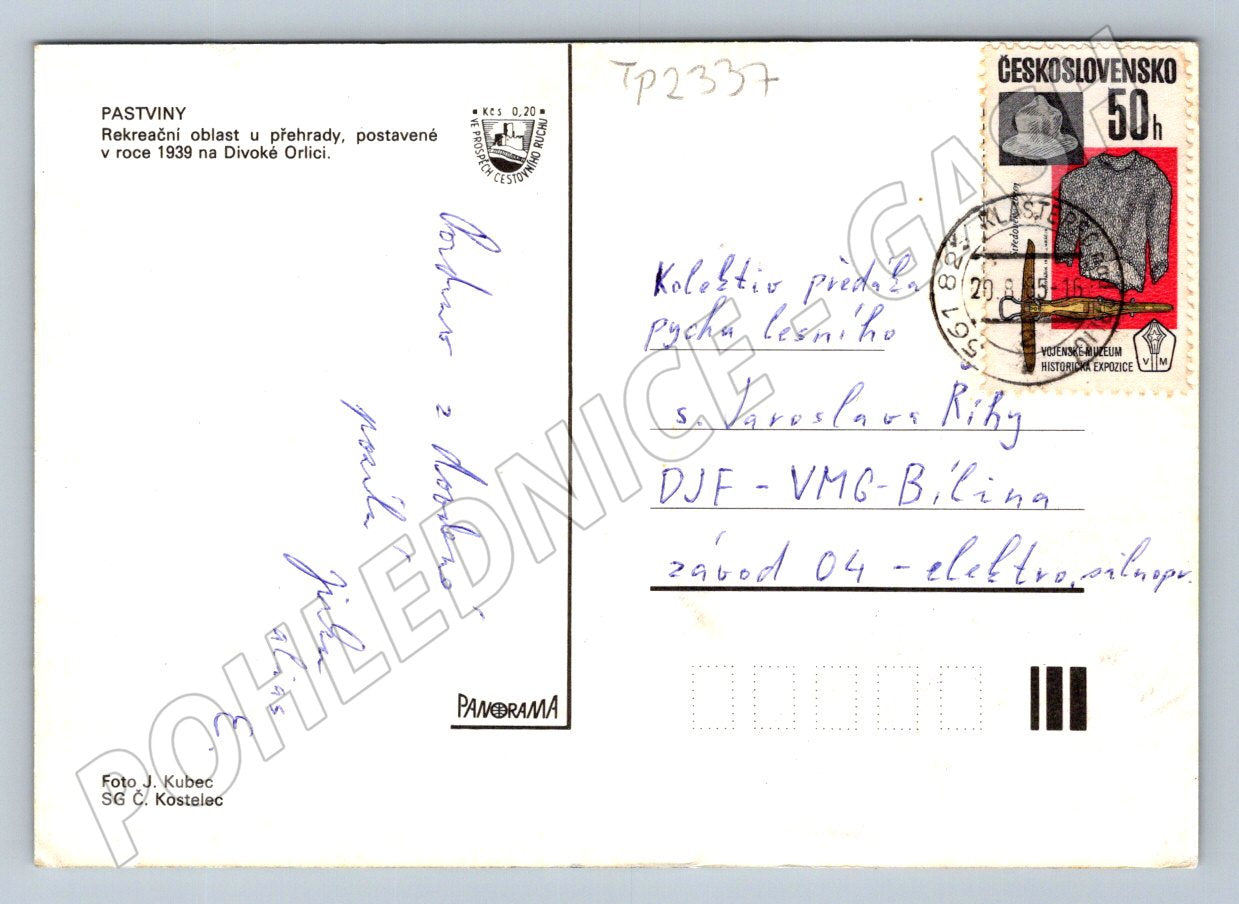 PASTVINY
Rekreační oblast u přehrady, postavené
v roce 1939 na Divoké Orlici.
Kčs 0,20
VE PROSPĚCH CESTOVNÍHO RUCHU
TP2337
ČESKOSLOVENSKO
50h
VOJENSKÉ MUZEUM
HISTORICKÁ EXPOZICE
V M
561 82
20.8.85-16
Pozdrav
z dovolené
posílá
Jirka
alias
Kolektiv předáka
pycha lesního
s. Jaroslava Říhy
DJF - VMG - Bílina
závod 04 - elektro, silnopr.
PANORAMA
Foto J. Kubec
SG Č. Kostelec
POHLEDNICE - GASH